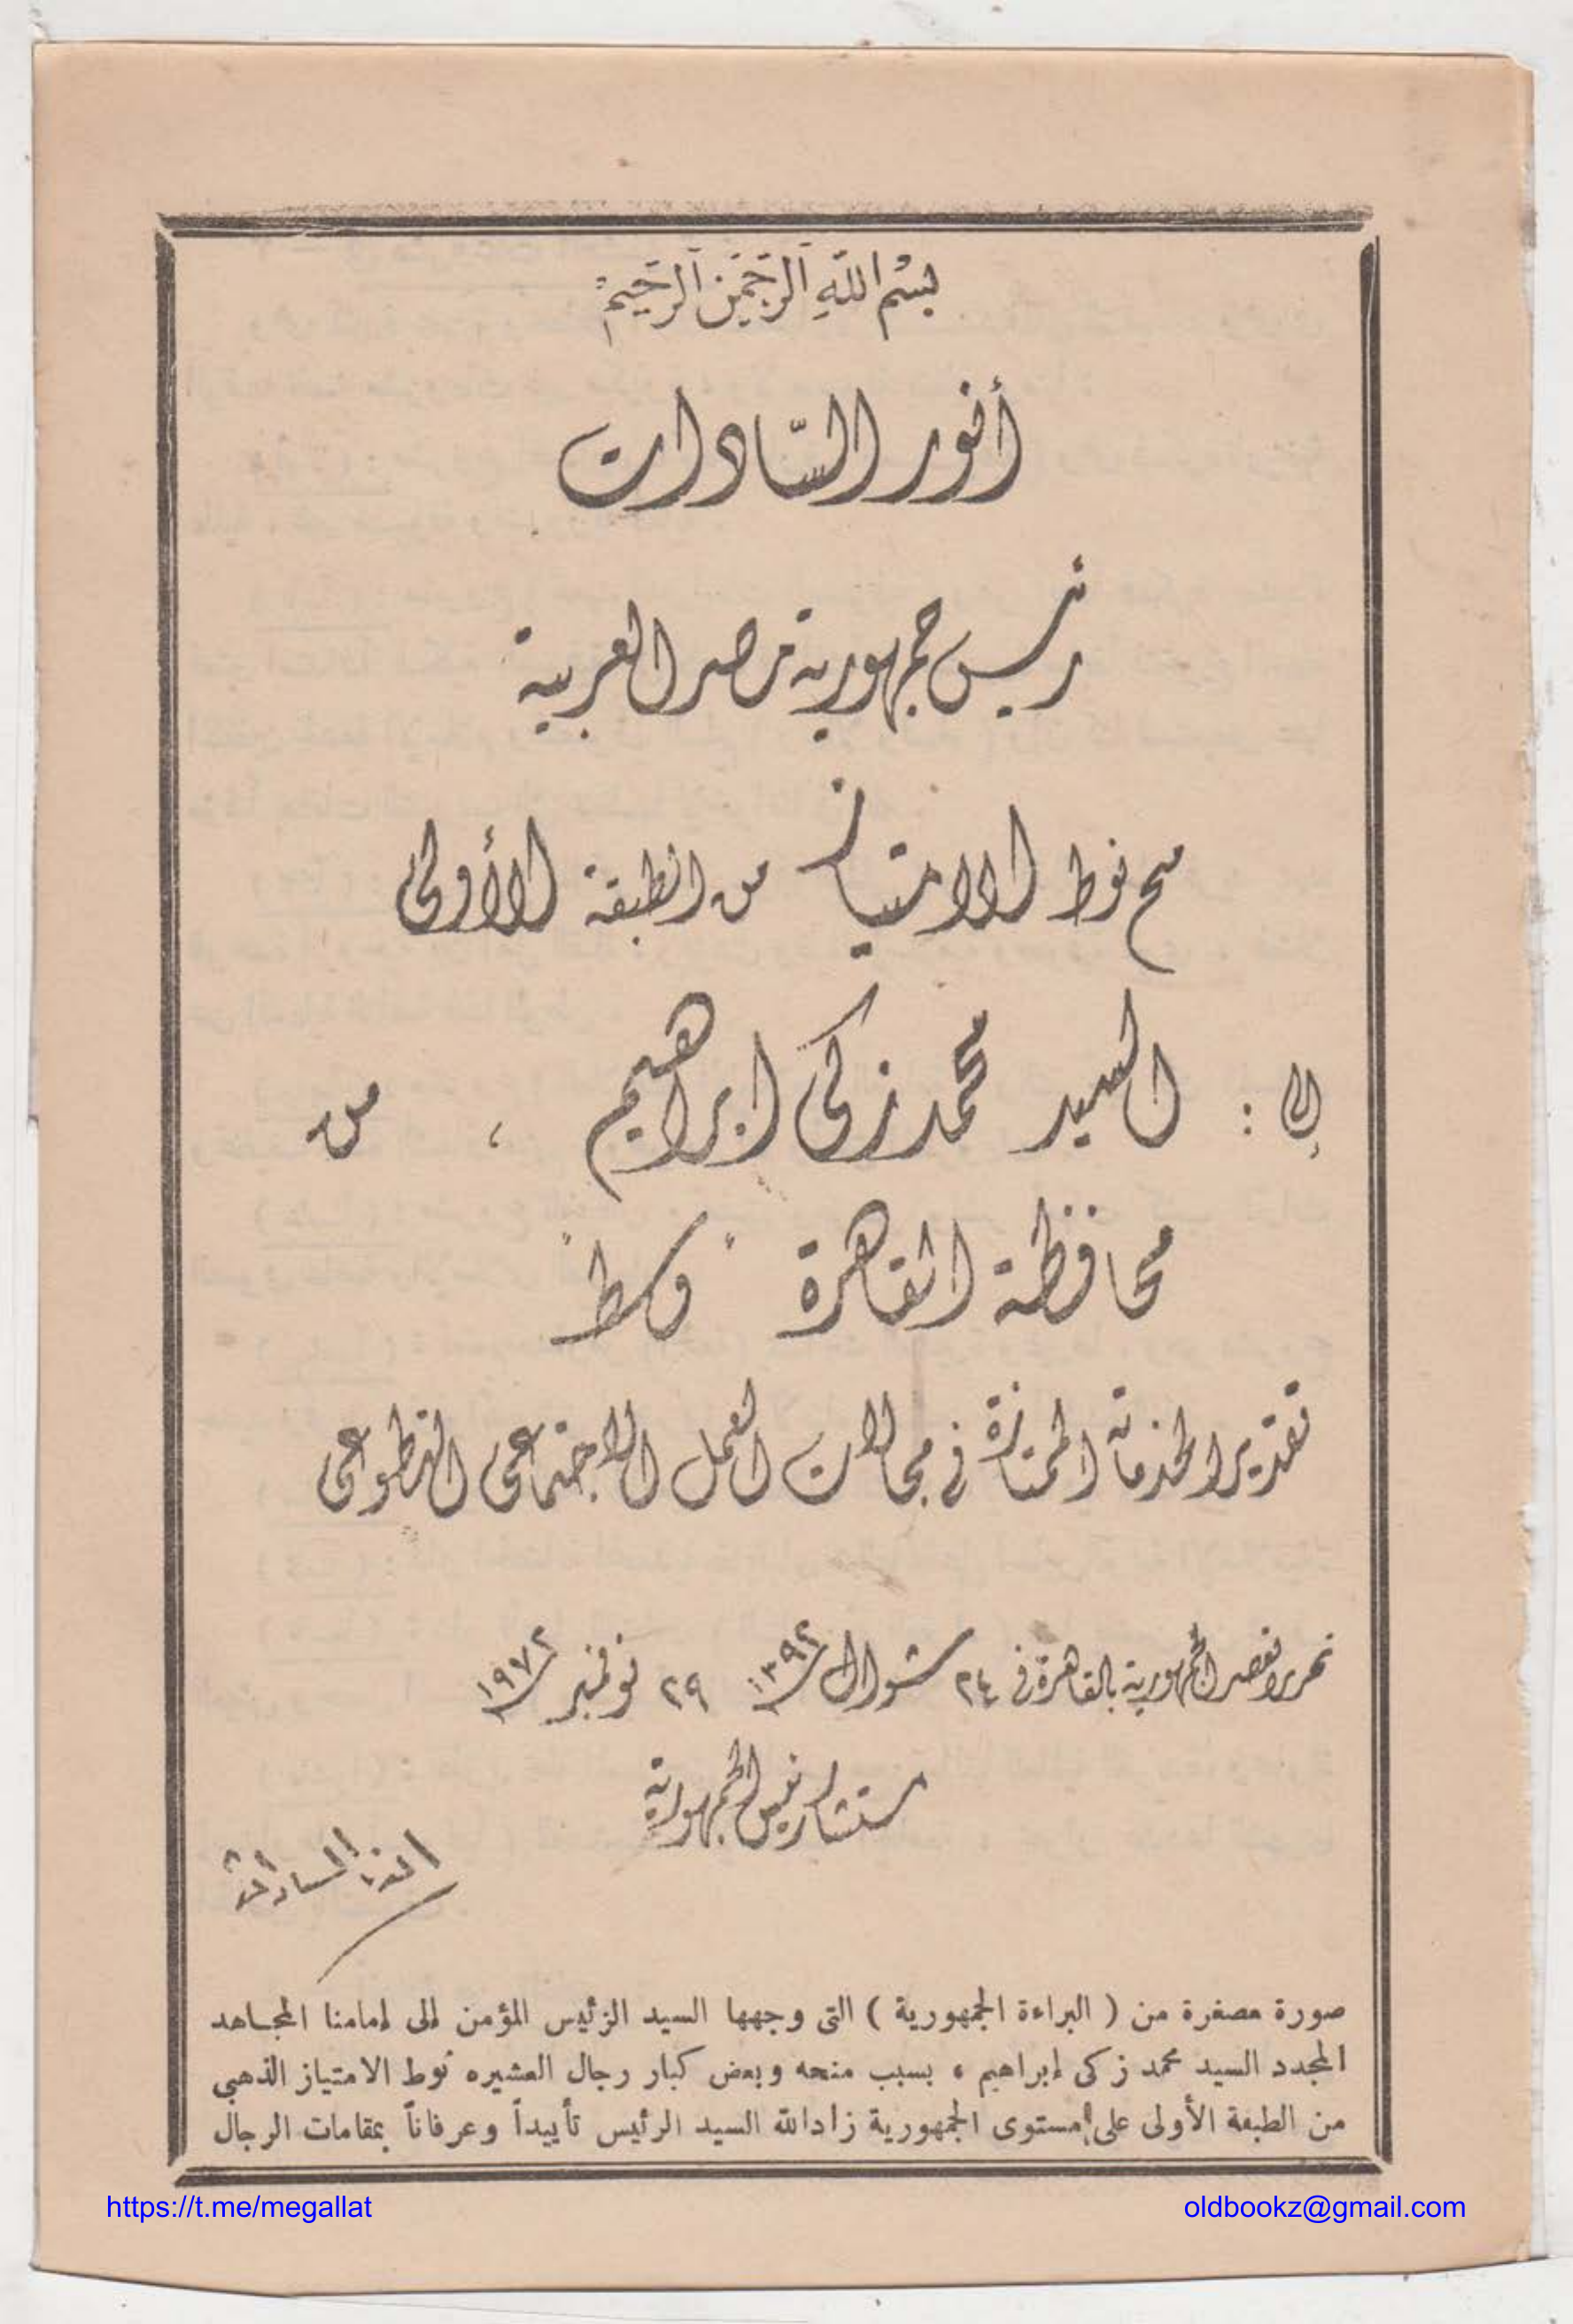 بسم الله الرحمن الرحيم
أنور السّادات
رئيس جمهورية مصر العربية
منح نوط الامتياز من الطبقة الأولى
إلى : السيد محمد زكى ابراهيم ، من
محافظة القاهرة " وسط "
تقديرا لخدماته الممتازة فى مجالات العمل الاجتماعى التطوعى
تحريرا بقصر الجمهورية بالقاهرة فى ٢٤ شوال ١٣٩٢ ٢٩ نوفمبر ١٩٧٢
مستشار رئيس الجمهورية
أنور السادات
صورة مصغرة من ( البراءة الجمهورية ) التى وجهها السيد الرئيس المؤمن إلى إمامنا المجاهد
المجدد السيد محمد زكى إبراهيم ، بسبب منحه وبعض كبار رجال العشيره نوط الامتياز الذهبي
من الطبقة الأولى على مستوى الجمهورية زاد الله السيد الرئيس تأييداً وعرفاناً بمقامات الرجال
https://t.me/megallat
oldbookz@gmail.com